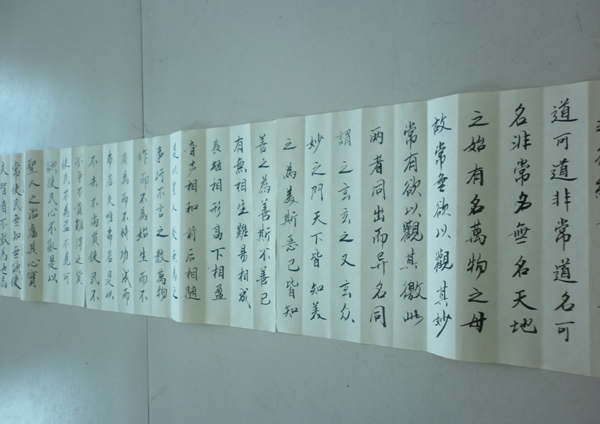 道可道非常道名可
名非常名無名天地
之始有名萬物之母
故常無欲以觀其妙
常有欲以觀其徼此
兩者同出而异名同
謂之玄玄之又玄众
妙之門天下皆知美
之為美斯惡已皆知
善之為善斯不善已
有無相生難易相成
長短相形高下相盈
音声相和前后相隨
是以聖人处無為之
事行不言之教萬物
作而不為始生而不
有為而不恃功成而
弗居夫唯弗居是以
不去不尚賢使民不
爭不貴難得之貨
使民不為盜不見可
欲使民心不亂是以
聖人之治虛其心實
常使民無知無欲使
夫智者不敢為也為